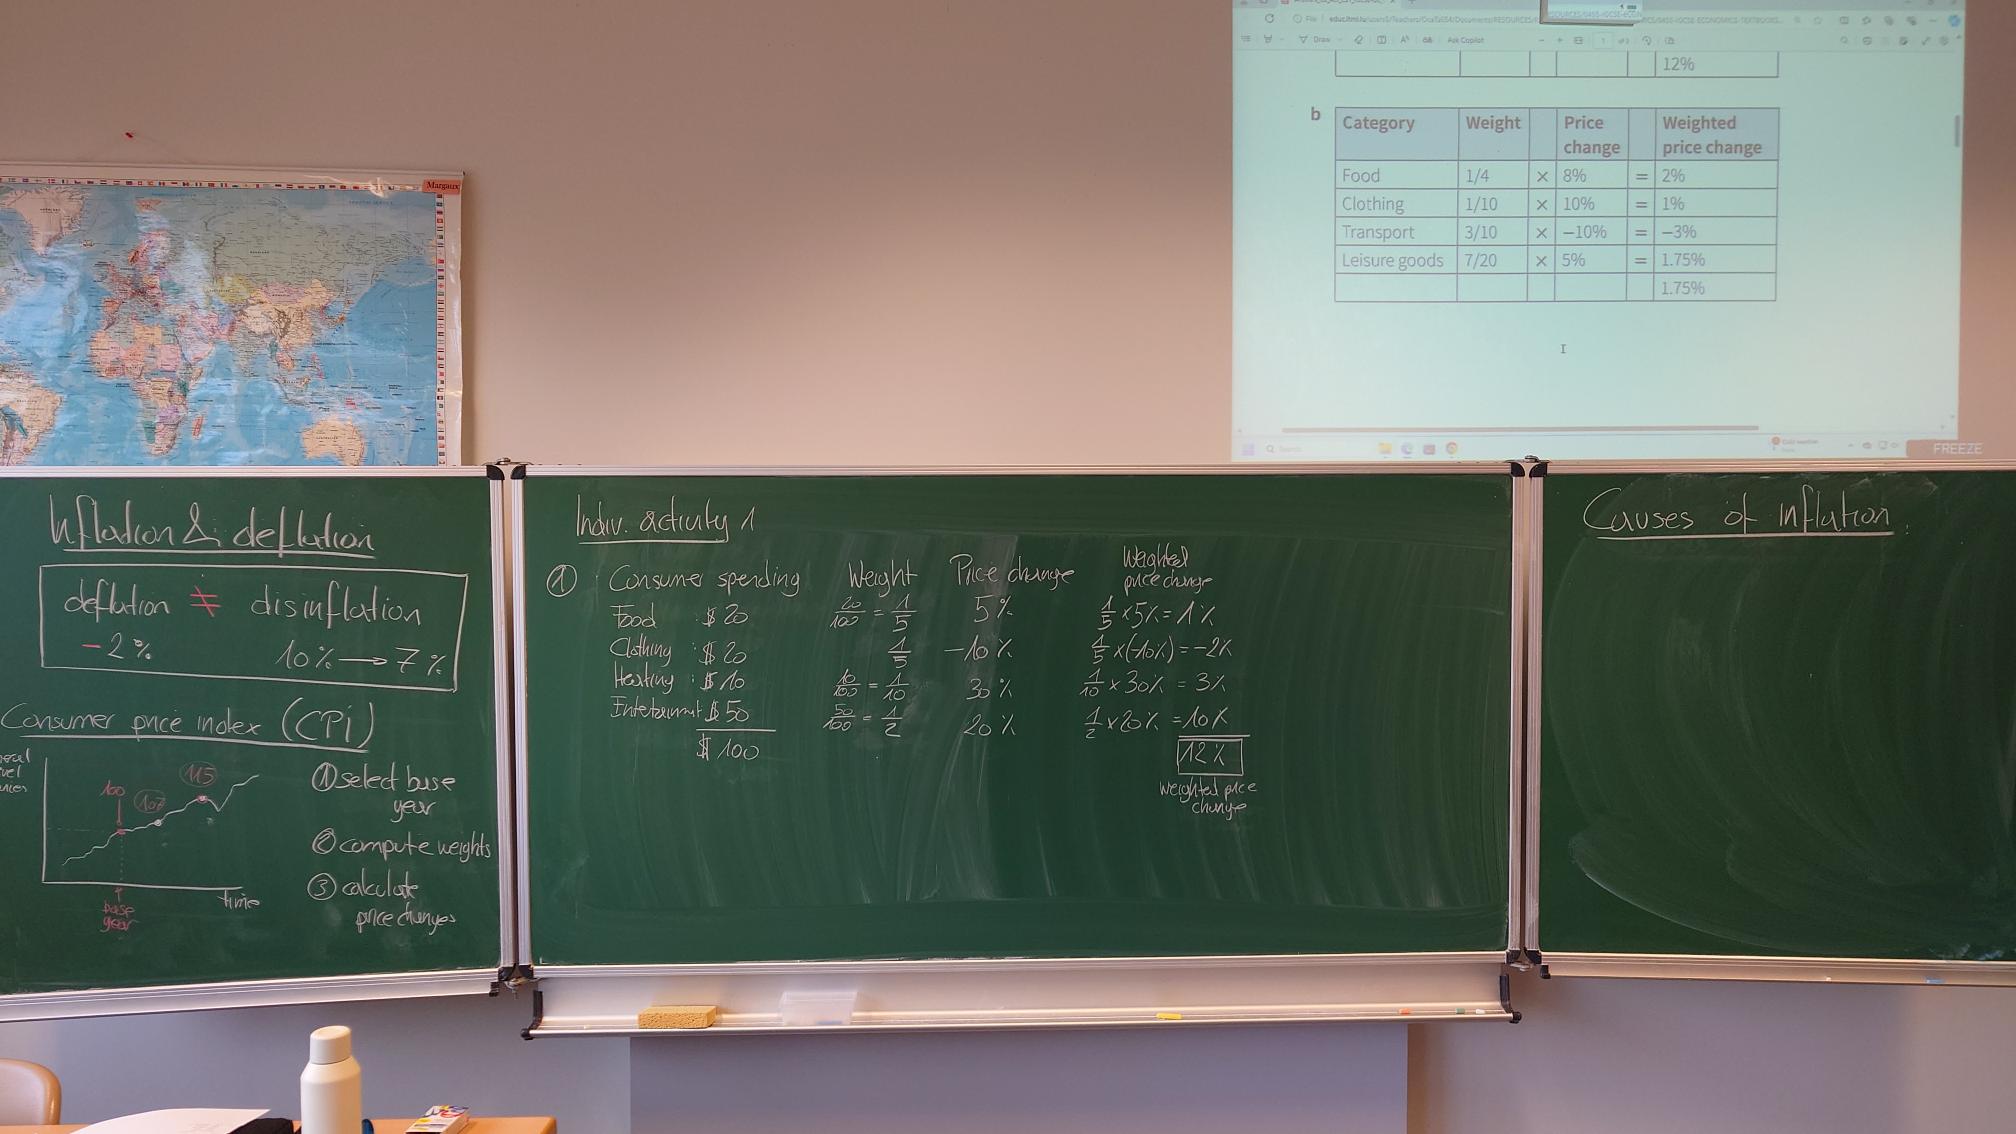 Margaux
Draw
Ask Copilot
12%
b
Category Weight Price change Weighted price change
Food 1/4 × 8% = 2%
Clothing 1/10 × 10% = 1%
Transport 3/10 × −10% = −3%
Leisure goods 7/20 × 5% = 1.75%
1.75%
Search
FREEZE
Inflation & deflation
deflation ≠ disinflation
-2% 10% → 7%
Consumer price index (CPi)
100
107
115
base
year
time
① select base
year
② compute weights
③ calculate
price changes
Indiv. activity 1
① Consumer spending Weight Price change Weighted price change
Food : $ 20 20/100 = 1/5 5% 1/5 × 5% = 1%
Clothing : $ 20 1/5 -10% 1/5 × (-10%) = -2%
Heating : $ 10 10/100 = 1/10 30% 1/10 × 30% = 3%
$ 50 50/100 = 1/2 20% 1/2 × 20% = 10%
$ 100 12%
weighted price
change
Causes of inflation